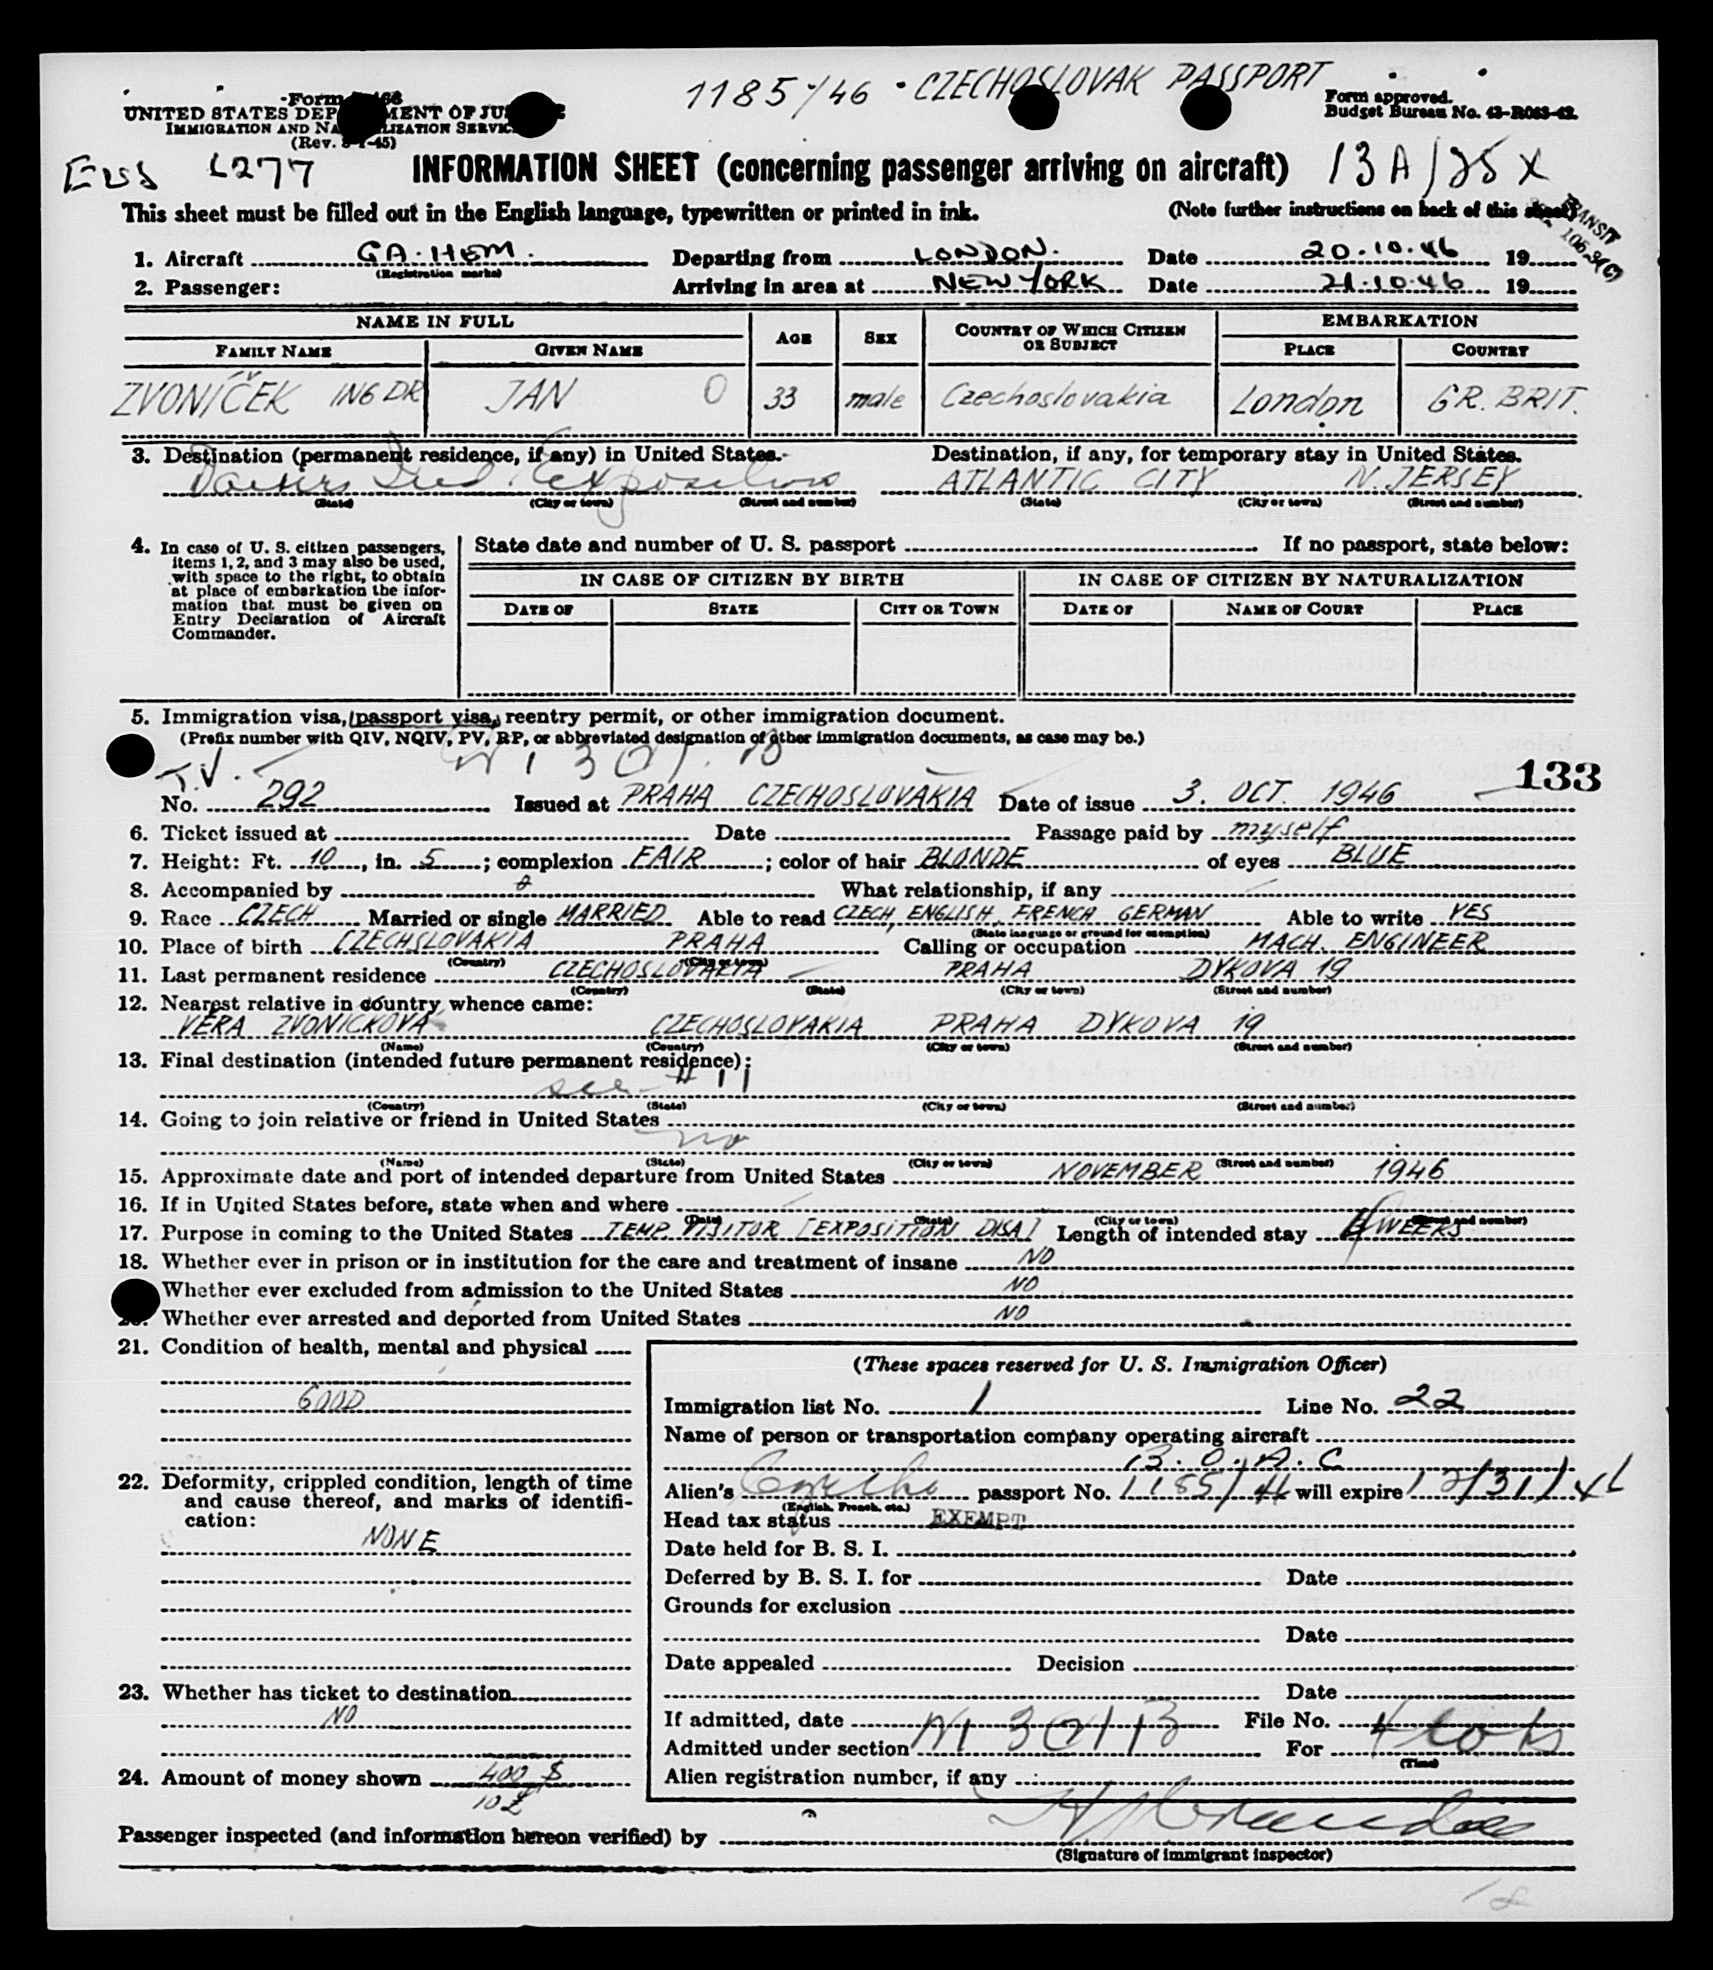 1185/46 · CZECHOSLOVAK PASSPORT
Form
UNITED STATES DEP MENT OF JU
IMMIGRATION AND NA LIZATION SERVIC
(Rev. -45)
Form approved.
Budget Bureau No. 43-R083-42.
L277
INFORMATION SHEET (concerning passenger arriving on aircraft)
13A/25 X
This sheet must be filled out in the English language, typewritten or printed in ink.
(Note further instructions on back of this sheet)
TRANSIT
1. Aircraft GA·HEM. Departing from LONDON. Date 20.10.46 19
(Registration marks)
2. Passenger: Arriving in area at NEW YORK Date 21.10.46 19
NAME IN FULL AGE SEX COUNTRY OF WHICH CITIZEN OR SUBJECT EMBARKATION
FAMILY NAME GIVEN NAME PLACE COUNTRY
ZVONÍČEK ING DR JAN 0 33 male Czechoslovakia London GR. BRIT.
3. Destination (permanent residence, if any) in United States. Destination, if any, for temporary stay in United States.
Exposition ATLANTIC CITY N. JERSEY
(State) (City or town) (Street and number) (State) (City or town) (Street and number)
4. In case of U. S. citizen passengers, items 1, 2, and 3 may also be used, with space to the right, to obtain at place of embarkation the information that must be given on Entry Declaration of Aircraft Commander.
State date and number of U. S. passport If no passport, state below:
IN CASE OF CITIZEN BY BIRTH IN CASE OF CITIZEN BY NATURALIZATION
DATE OF STATE CITY OR TOWN DATE OF NAME OF COURT PLACE
5. Immigration visa, passport visa, reentry permit, or other immigration document.
(Prefix number with QIV, NQIV, PV, RP, or abbreviated designation of other immigration documents, as case may be.)
T.V.
133
No. 292 Issued at PRAHA CZECHOSLOVAKIA Date of issue 3. OCT. 1946
6. Ticket issued at Date Passage paid by myself
7. Height: Ft. 10, in. 5; complexion FAIR; color of hair BLONDE of eyes BLUE
8. Accompanied by 0 What relationship, if any
9. Race CZECH Married or single MARRIED Able to read CZECH, ENGLISH, FRENCH GERMAN Able to write YES
(State language or ground for exemption)
10. Place of birth CZECHSLOVAKIA PRAHA Calling or occupation MACH. ENGINEER
(Country) (City or town)
11. Last permanent residence CZECHOSLOVAKIA PRAHA DYKOVA 19
(Country) (State) (City or town) (Street and number)
12. Nearest relative in country whence came:
VĚRA ZVONICKOVÁ CZECHOSLOVAKIA PRAHA DYKOVA 19
(Name) (Country) (City or town) (Street and number)
13. Final destination (intended future permanent residence):
see # 11
(Country) (State) (City or town) (Street and number)
14. Going to join relative or friend in United States
no
(Name) (State) (City or town) (Street and number)
15. Approximate date and port of intended departure from United States NOVEMBER 1946
16. If in United States before, state when and where
(Date) (State) (City or town) (Street and number)
17. Purpose in coming to the United States TEMP. VISITOR [EXPOSITION DISA] Length of intended stay 4 WEEKS
18. Whether ever in prison or in institution for the care and treatment of insane NO
Whether ever excluded from admission to the United States NO
20. Whether ever arrested and deported from United States NO
21. Condition of health, mental and physical
GOOD
22. Deformity, crippled condition, length of time and cause thereof, and marks of identification:
NONE
23. Whether has ticket to destination
NO
24. Amount of money shown 400 $
10 £
(These spaces reserved for U. S. Immigration Officer)
Immigration list No. 1 Line No. 22
Name of person or transportation company operating aircraft
B.O.A.C
Alien's Czecho passport No. 1185/46 will expire 12/31/46
(English, French, etc.)
Head tax status EXEMPT
Date held for B. S. I.
Deferred by B. S. I. for Date
Grounds for exclusion
Date
Date appealed Decision
Date
If admitted, date File No.
Admitted under section For
(Time)
Alien registration number, if any
Passenger inspected (and information hereon verified) by
(Signature of immigrant inspector)